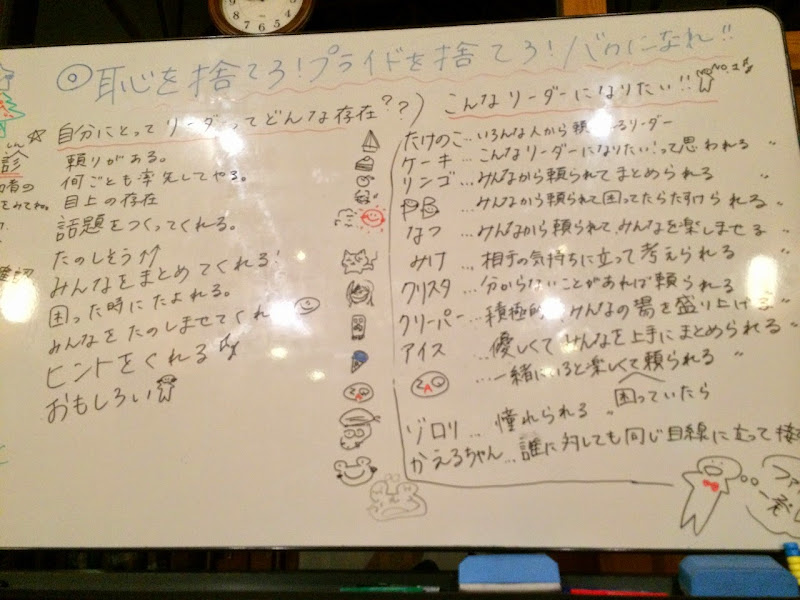 ◎恥を捨てろ!プライドを捨てろ!バカになれ!!
自分にとってリーダーってどんな存在??
頼りがある。
何ごとも率先してやる。
目上の存在
話題をつくってくれる。
たのしそう↑↑
みんなをまとめてくれる!
困った時にたよれる。
みんなをたのしませてくれ
ヒントをくれる
おもしろい
こんなリーダーになりたい!!
たけのこ…いろんな人から頼 るリーダー
ケーキ…こんなリーダーになりたい!って思われる 〃
リンゴ…みんなから頼られてまとめられる 〃
…みんなから頼られて困ってたらたすけられる 〃
なつ…みんなから頼られて、みんなを楽しませる 〃
みけ…相手の気持ちに立って考えられる 〃
クリスタ…分からないことがあれば頼られる 〃
クリーパー…積極的 みんなの場を盛り上げる 〃
アイス…優しくてみんなを上手にまとめられる 〃
…一緒にいると楽しくて頼られる 〃
困っていたら
ゾロリ…憧れられる 〃
かえるちゃん…誰に対しても同じ目線に立って
診
しん
の
をみてね。
ファ
一発